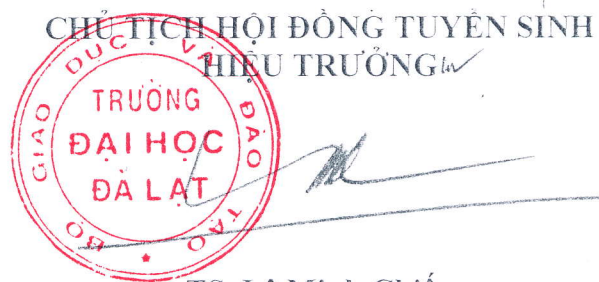 CHỦ TỊCH HỘI ĐỒNG TUYỂN SINH
HIỆU TRƯỞNG
BỘ GIÁO DỤC VÀ ĐÀO TẠO
TRƯỜNG
ĐẠI HỌC
ĐÀ LẠT
TS. Lê Minh